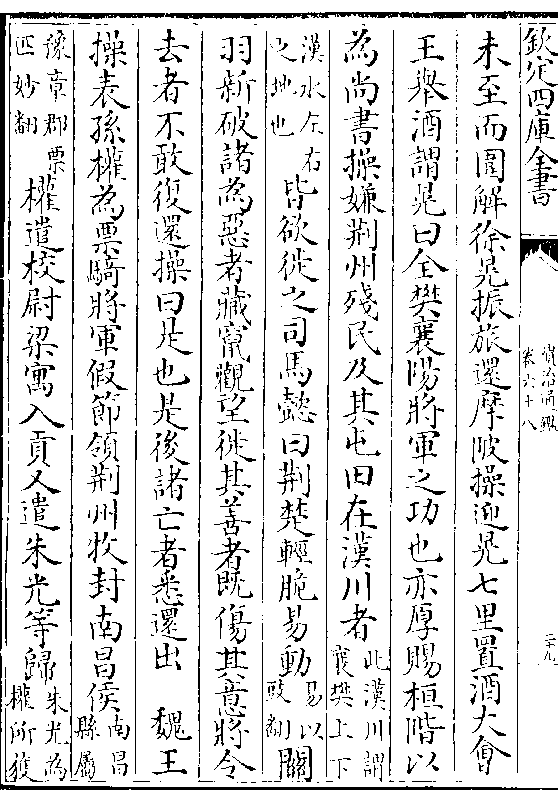 欽定四庫全書
資治通鑑
卷六十八
二十九
未至而圍解徐晃振旅還摩陂操迎晃七里置酒大會
王舉酒謂晃曰全樊襄陽將軍之功也亦厚賜桓階以
為尚書操嫌荆州殘民及其屯田在漢川者此漢川謂襄樊上下
漢水左右之地也皆欲徙之司馬懿曰荆楚輕脆易動易以豉翻關
羽新破諸為惡者藏竄觀望徙其善者既傷其意將令
去者不敢復還操曰是也是後諸亡者悉還出 魏王
操表孫權為票騎將軍假節領荆州牧封南昌侯南昌縣屬
豫章郡票匹妙翻權遣校尉梁寓入貢又遣朱光等歸朱光為權所獲